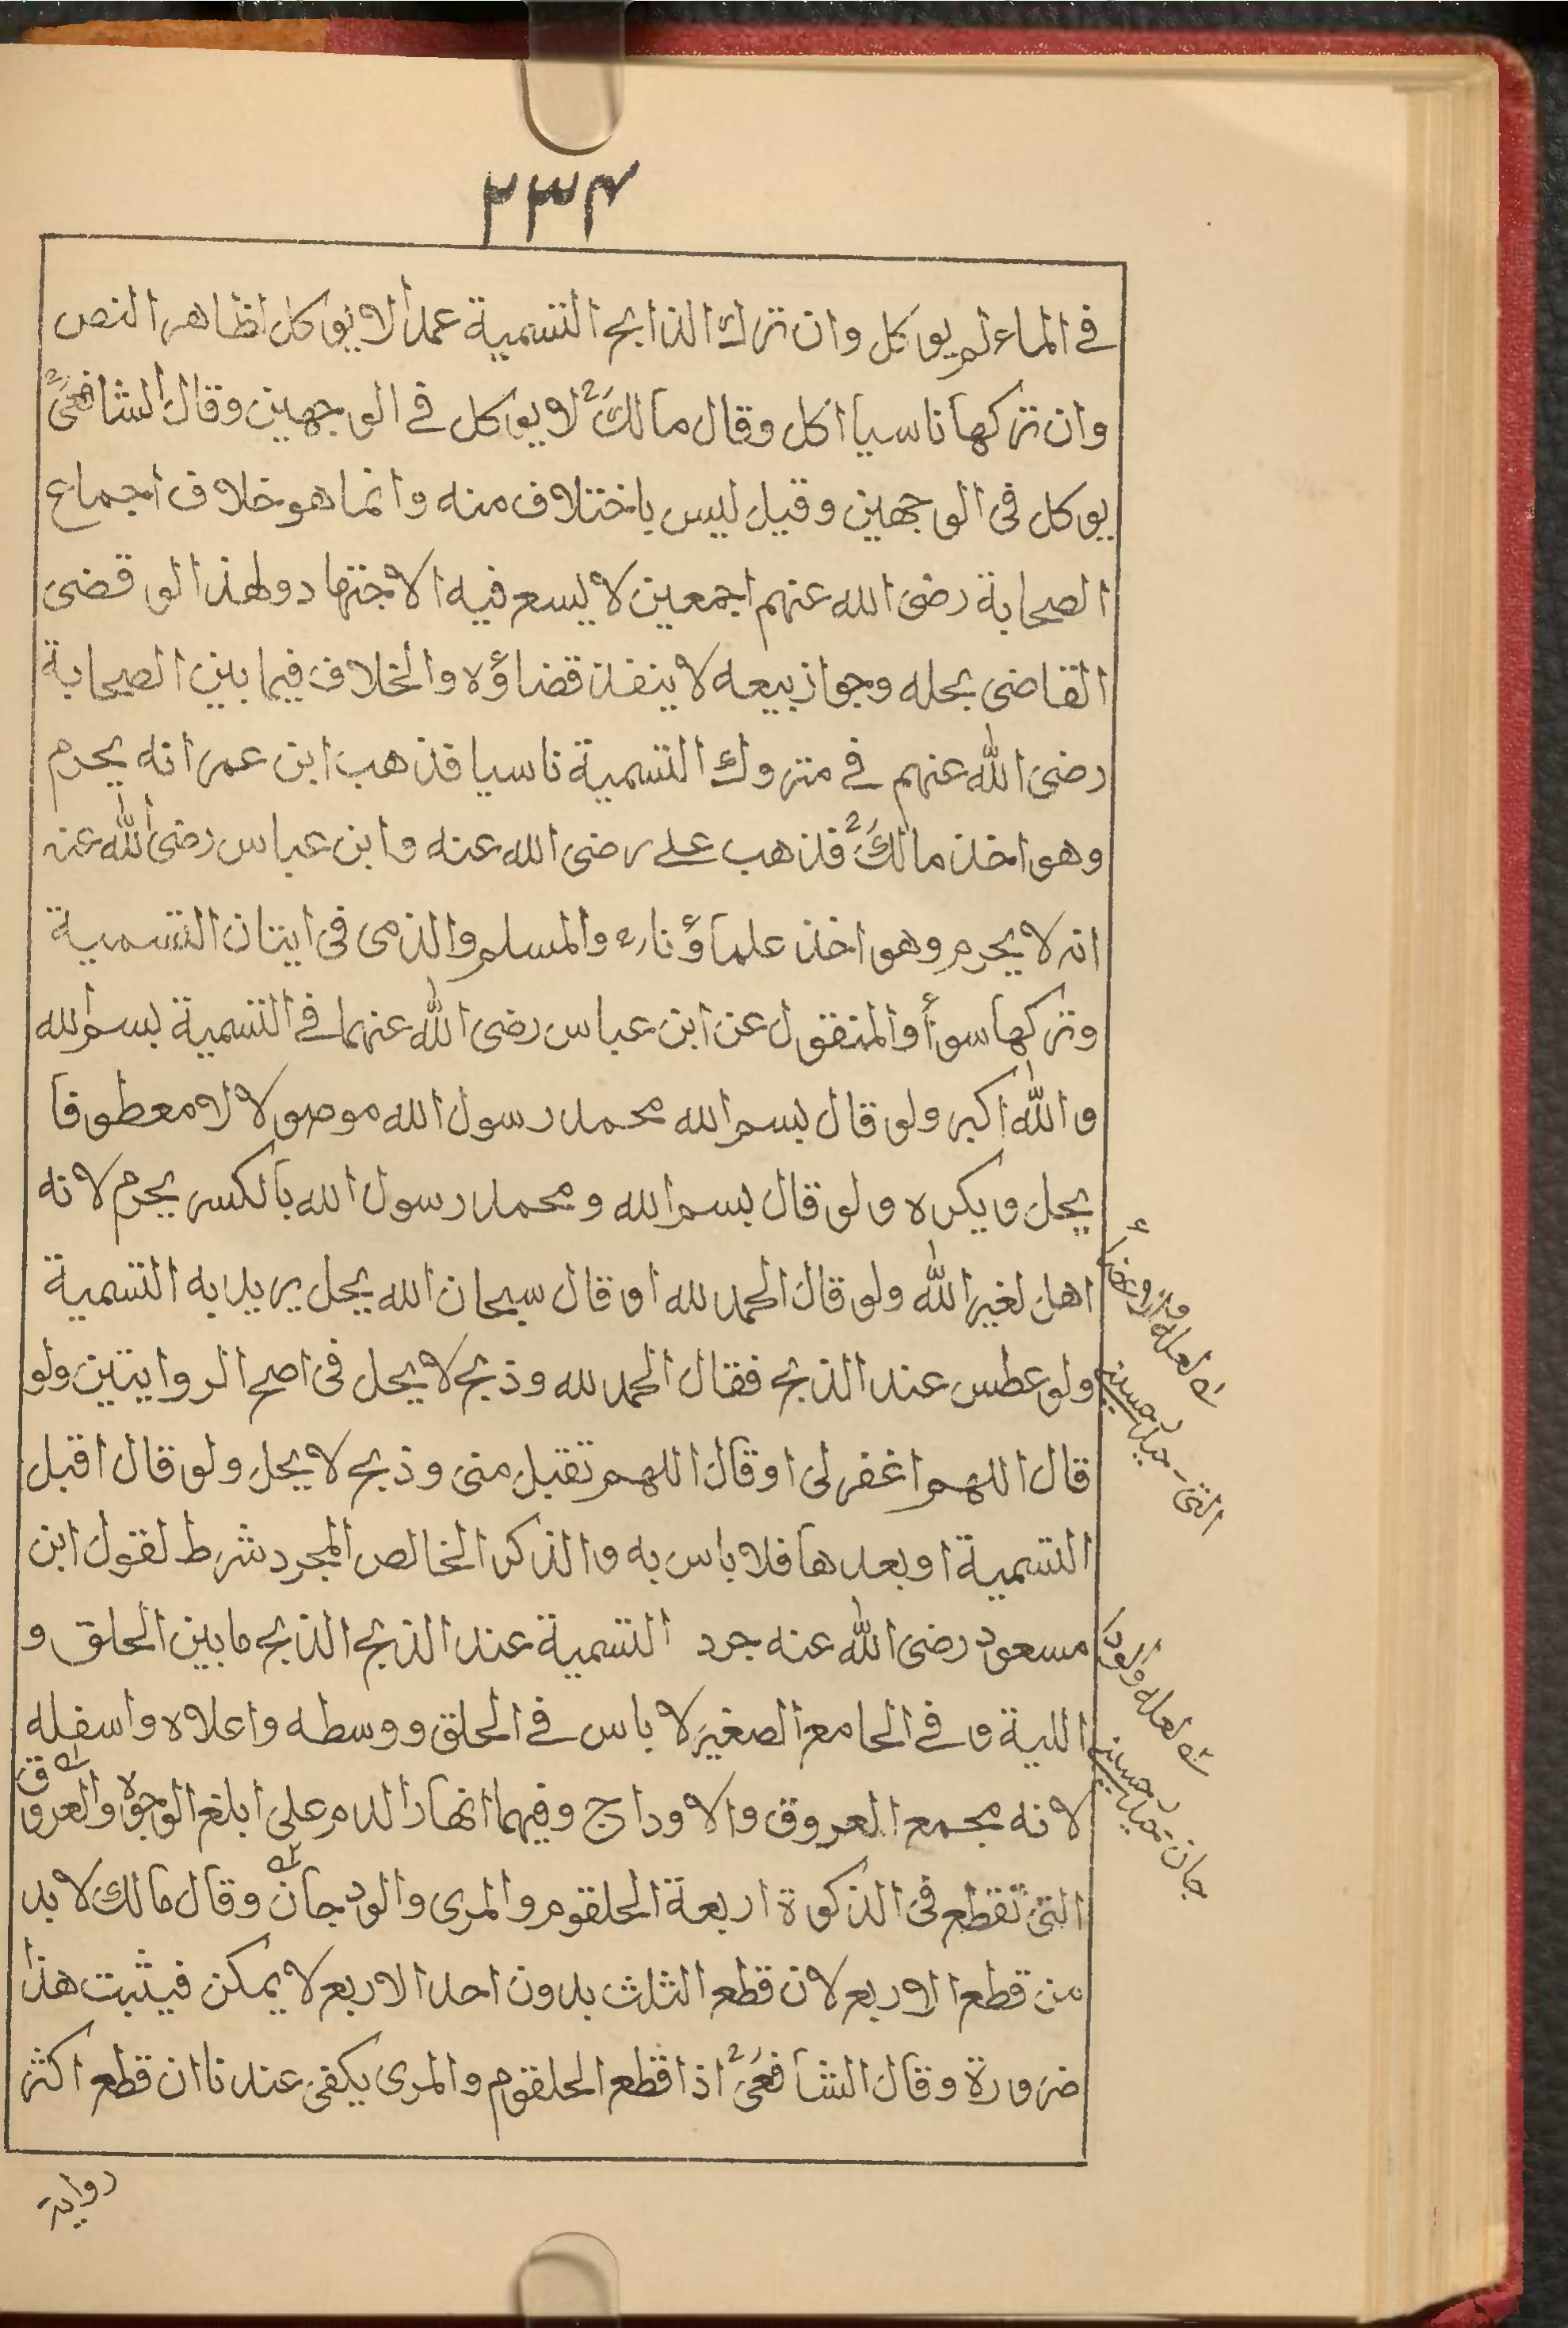 ٢٣٤
في الماء لم يوكل وان ترك الذابح التسمية عمدا لا يوكل لظاهر النص
وان تركها ناسيا اكل وقال مالكؒ لا يوكل في الوجهين وقال الشافعىؒ
يوكل فى الوجهين وقيل ليس باختلاف منه وانما هو خلاف اجماع
الصحابة رضى الله عنهم اجمعين لا يسع فيه الاجتهاد ولهذا لو قضى
القاضى بحله وجواز بيعه لا ينفذ قضاؤه والخلاف فيما بين الصحابة
رضى الله عنهم في متروك التسمية ناسيا فذهب ابن عمر انه يحرم
وهو اخذ مالكؒ فذهب على رضى الله عنه وابن عباس رضى الله عنه
انه لا يحرم وهو اخذ علماؤنا رح والمسلم والذمى فى ايتان التسمية
وتركها سوأ والمنقول عن ابن عباس رضى الله عنهما في التسمية بسم الله
والله اكبر ولو قال بسم الله محمد رسول الله موصولا لا معطوفا
يحل ويكره ولو قال بسم الله ومحمد رسول الله بالكسر يحرم لانه
اهل لغير الله ولو قال الحمد لله او قال سبحان الله يحل يريد به التسمية
ولو عطس عند الذبح فقال الحمد لله وذبح لا يحل فى اصح الروايتين ولو
قال اللهم اغفر لى او قال اللهم تقبل منى وذبح لا يحل ولو قال اقبل
التسمية او بعدها فلا باس به والذكر الخالص المجرد شرط لقول ابن
مسعود رضى الله عنه جرد التسمية عند الذبح الذبح ما بين الحلق و
اللبة و في الجامع الصغير لا باس في الحلق ووسطه واعلاه واسفله
لانه مجمع العروق والاوداج وفيهما انهار الدم على ابلغ الوجوه والعروق
التى تقطع فى الذكوة اربعة الحلقوم والمرى والودجان وقال مالك لا بد
من قطع الاربع لان قطع الثلث بدون احد الاربع لا يمكن فيثبت هذا
ضرورة وقال الشافعىؒ اذا قطع الحلقوم والمرى يكفى عندنا ان قطع اكثر
رواية